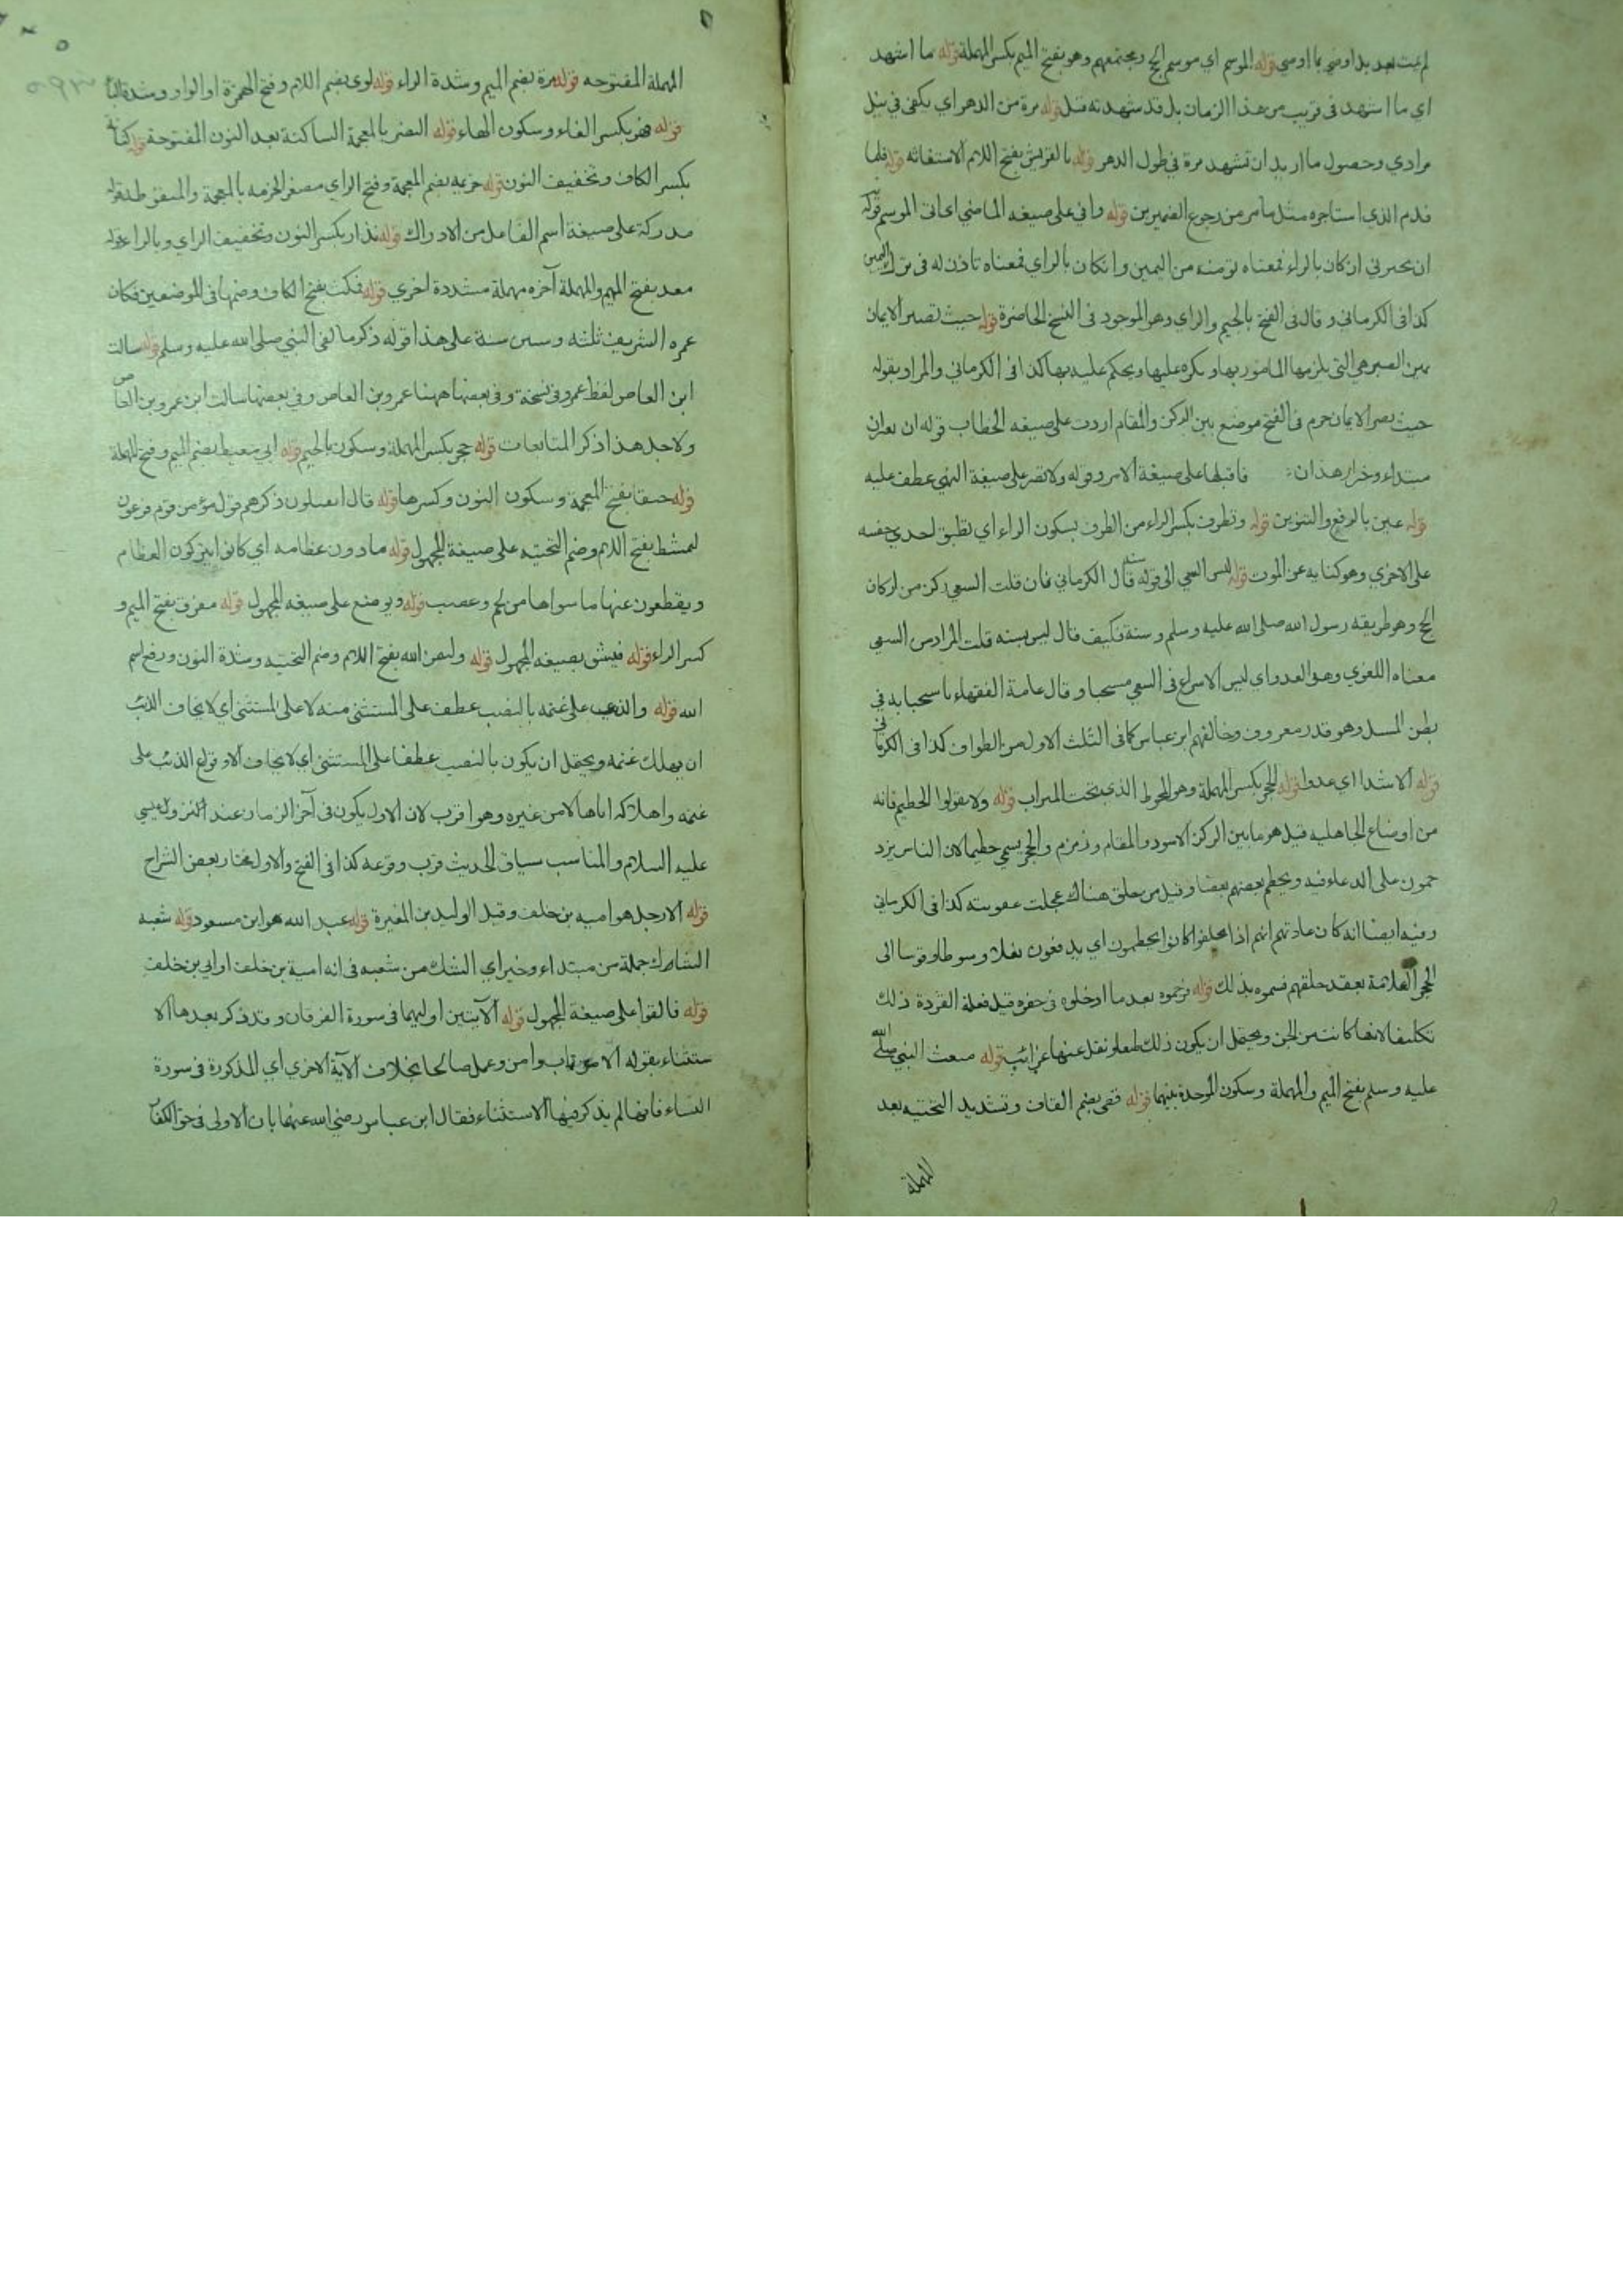 لم يمت بعد بل اوصي بما اوصي قوله الموسم اي موسم الحج ومجتمعهم وهو بفتح الميم بكسر المهملة قوله ما اشهد
اي ما اشهد في قريب من هذا الزمان بل قد شهدته قبل قوله مرة من الدهر اي يكفي في نيل
مرادي وحصول ما اريد ان تشهد مرة في طول الدهر قوله يا لقريش بفتح اللام الاستغاثه قوله فلما
قدم الذي استاجره مثل مامر من رجوع الضميرين قوله وافي على صيغه الماضي اي اتى الموسم قوله
ان يجيرني ان كان بالراء فمعناه تؤمنه من اليمين وان كان بالزاي فمعناه تاذن له في ترك اليمين
كذا في الكرماني وقال في الفتح بالجيم والزاي وهو الموجود في النسخ الحاضرة قوله حيث تصبر الايمان
يمين الصبر هي التي يلزمها المامور بها ويكره عليها ويحكم عليه بها كذا في الكرماني والمراد بقوله
حيث تصبر الايمان حرم في الفتح موضع بين الركن والمقام اردت على صيغه الخطاب قوله ان بعيران
مبتداء وخبراه هذان فاقبلها على صيغة الامر وقوله ولا تصبر على صيغة النهي عطف عليه
قوله عين بالرفع والتنوين قوله وتطرف بكسر الراء من الطرف بسكون الراء اي تطبق احدي جفنيه
على الاخري وهو كنايه عن الموت قوله ليس السعي الى قوله سنة قال الكرماني فان قلت السعي ركن من اركان
الحج وهو طريقه رسول الله صلى الله عليه وسلم وسنة فكيف قال ليس بسنه قلت المراد من السعي
معناه اللغوي وهو العدو اي ليس الاسراع في السعي مستحبا وقال عامة الفقهاء باستحبابه في
بطن المسيل وهو قدر معروف وخالفهم ابن عباس كما في الثلث الاول من الطواف كذا في الكرماني
قوله الا شدا اي عدوا قوله الحجر بكسر المهملة وهو المحوط الذي تحت الميزاب قوله ولا تقولوا الحطيم فانه
من اوضاع الجاهليه قيل هو ما بين الركن الاسود والمقام وزمزم والحجر يسمي حطيما لان الناس يزد
حمون على الدعاء فيه ويحطم بعضهم بعضا وقيل من حلف هناك عجلت عقوبته كذا في الكرماني
وفيه ايضا انه كان عادتهم انهم اذا تحالفوا كانوا يحطمون اي يدفعون نعلا او سوطا او قوسا الى
الحجر العلامة بعقد حلفهم فسموه بذلك قوله فرجموه بعد ما ادخلوه في حفره قيل فعلة القردة ذلك
تكليفا لانها كانت من الجن ويحتمل ان يكون ذلك طبعا ونقل عنها غرائب قوله مبعث النبي صلى الله
عليه وسلم بفتح الميم والمهملة وسكون الموحدة بينهما قوله قصي بضم القاف وتشديد التحتيه بعد
المهملة
المهملة المفتوحه قوله مرة بضم الميم وشدة الراء قوله لوي بضم اللام وفتح الهمزة او الواو وشدة
قوله فهر بكسر الفاء وسكون الهاء قوله النضر بالمعجمة الساكنة بعد النون المفتوحة قوله كنانة
بكسر الكاف وتخفيف النون قوله خزيمه بضم المعجمة وفتح الزاي مصغر الخزمه بالمعجمة قوله
مدركة على صيغة اسم الفاعل من الادراك قوله نذار بكسر النون وتخفيف الزاي وبالراء قوله
معد بفتح الميم والمهملة آخره مهملة مشددة اخري قوله فمكث بفتح الكاف وضمها في الموضعين فكان
عمره الشريف ثلثه وستين سنة على هذا قوله ذكر ما لقي النبي صلى الله عليه وسلم قوله سالت
ابن العاص لفظ عمرو في نسخة وفي بعضها ههنا عمرو بن العاص وفي بعضها سالت ابن عمرو بن العاص
ولاجل هذا ذكر المتابعات قوله حجر بكسر المهملة وسكون الجيم قوله ابي معيط بضم الميم وفتح المهملة
قوله خنقا بفتح المعجمة وسكون النون وكسرها قوله قال اتقتلون ذكرهم قول مؤمن قوم فرعون
ليمشط بفتح اللام وضم التحتيه على صيغة المجهول قوله ما دون عظامه اي كانوا يتركون العظام
ويقطعون عنها ما سواها من لحم وعصب قوله ويوضع على صيغه المجهول قوله مفرق بفتح الميم و
كسر الراء قوله فيشق بصيغه المجهول قوله وليتمن الله بفتح اللام وضم التحتيه وشدة النون ورفع اسم
الله قوله والذئب على غنمه بالنصب عطف على المستثني منه لا على المستثني اي لا يخاف الذئب
ان يهلك غنمه ويحتمل ان يكون بالنصب عطفا على المستثني اي لا يخاف الا وقوع الذئب على
غنمه واهلاكه اياها لا من غيره وهو اقرب لان الاول يكون في آخر الزمان عند نزول عيسي
عليه السلام والمناسب سياق الحديث قرب وقوعه كذا في الفتح والاول مختار بعض الشراح
قوله الا رجل هو اميه بن خلف وقيل الوليد بن المغيرة قوله عبد الله هو ابن مسعود قوله شعبه
الشاك جملة من مبتداء وخبر اي الشك من شعبه في انه امية بن خلف او ابي بن خلف
قوله فالقوا على صيغة المجهول قوله الآيتين اوليهما في سورة الفرقان وقد ذكر بعدها الا
ستثناء بقوله الا من تاب وامن وعمل صالحا بخلاف الآية الاخري اي المذكورة في سورة
النساء فانها لم يذكر فيها الاستثناء فقال ابن عباس رضي الله عنهما بان الاولى في حق الكفار